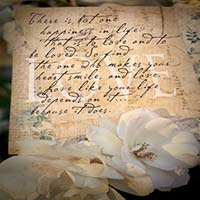 There is but one
happiness in life:
that is to love and to
be loved. So find
the one who makes your
heart smile, and love.
Love like your life
depends on it...
because it does.